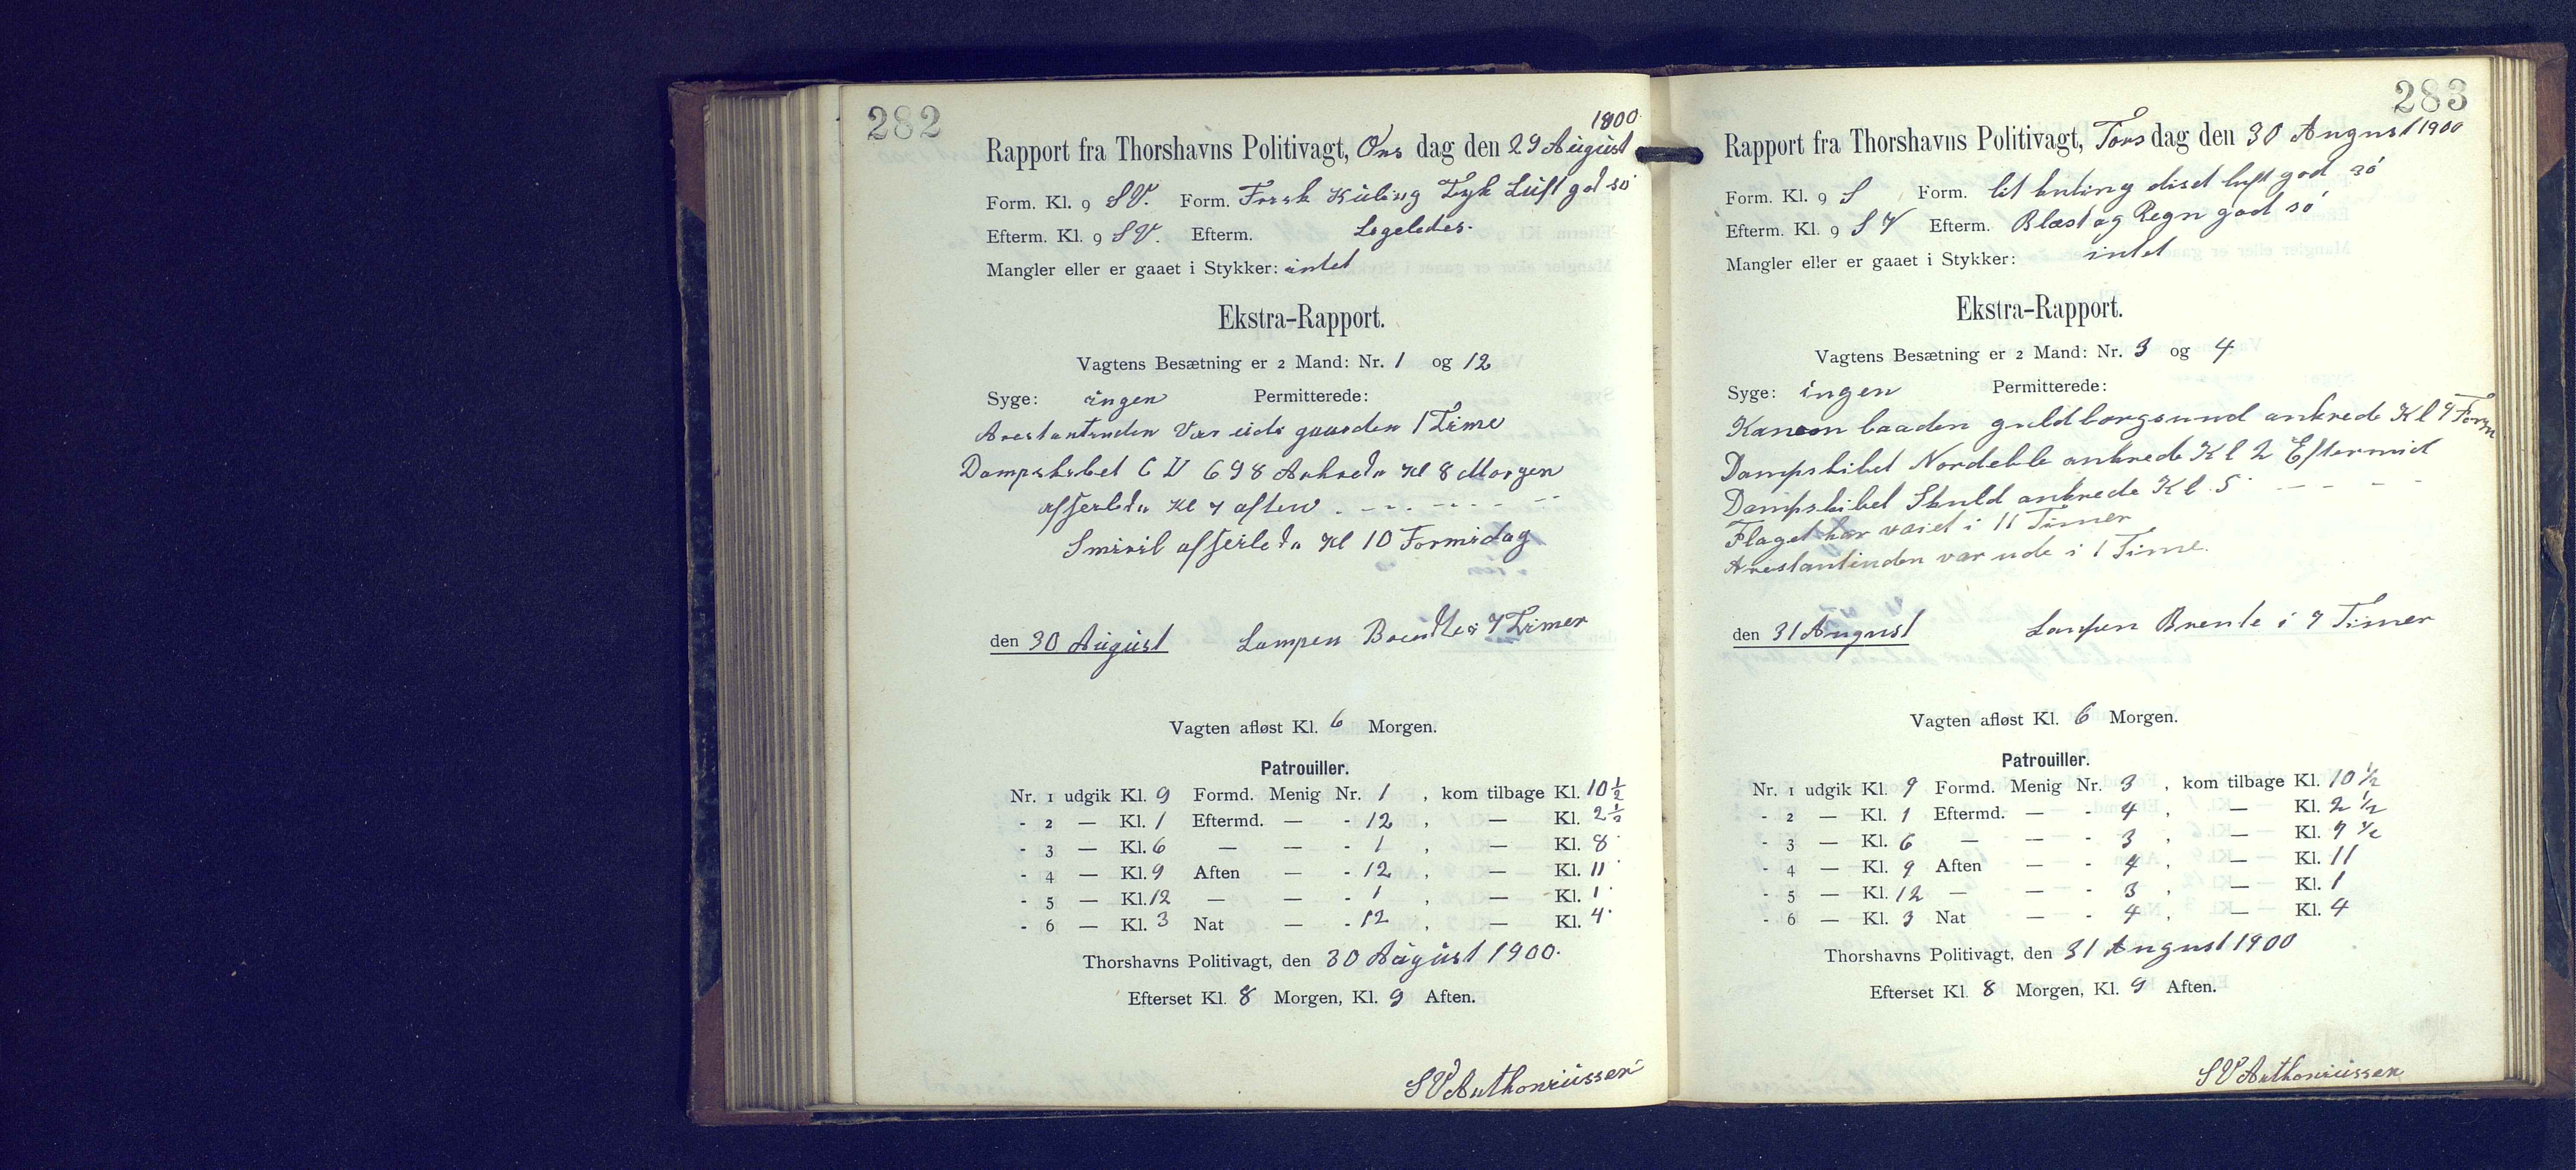 282
1900
Rapport fra Thorshavns Politivagt, Ons dag den 29 August
Form. Kl. 9 SV. Form. Fresk Kuling Tyk Luft god sö
Efterm. Kl. 9 SV. Efterm. Legeledes.
Mangler eller er gaaet i Stykker: intet
Ekstra-Rapport.
Vagtens Besætning er 2 Mand: Nr. 1 og 12
Syge: ingen Permitterede:
Arestantenden Var ude gaarden 1 Time
Dampskibet 698 Ankrede Kl 8 Morgen
afseilede Kl 7 aften
Smiril afseilede Kl 10 Formidag
den 30 August Lampen Brentte i 7 Timer
Vagten afløst Kl. 6 Morgen.
Patrouiller.
Nr. 1 udgik Kl. 9 Formd. Menig Nr. 1 , kom tilbage Kl. 10 ½
- 2 — Kl. 1 Eftermd. — - 12 , — Kl. 2 ½
- 3 — Kl. 6 — — - 1 , — Kl. 8
- 4 — Kl. 9 Aften — - 12 , — Kl. 11
- 5 — Kl. 12 — — - 1 , — Kl. 1
- 6 — Kl. 3 Nat — - 12 , — Kl. 4
Thorshavns Politivagt, den 30 August 1900.
Efterset Kl. 8 Morgen, Kl. 9 Aften.
SV Anthoniussen
283
Rapport fra Thorshavns Politivagt, Tors dag den 30 August 1900
Form. Kl. 9 S Form. lit kuling diset luft god sö
Efterm. Kl. 9 SV Efterm. Blæst og Regn god sö
Mangler eller er gaaet i Stykker: intet
Ekstra-Rapport.
Vagtens Besætning er 2 Mand: Nr. 3 og 4
Syge: ingen Permitterede:
Kanoon baaden guldborgsund ankrede Kl 9 Form
Dampskibet ankrede Kl 2 Eftermid
Dampskibet Skuld ankrede Kl. 5 - - - -
Flaget har vaiet i 11 Timer
Arestantinden var ude i 1 Time.
den 31 August Lanpen Brente i 7 Timer
Vagten afløst Kl. 6 Morgen.
Patrouiller.
Nr. 1 udgik Kl. 9 Formd. Menig Nr. 3 , kom tilbage Kl. 10 ½
- 2 — Kl. 1 Eftermd. — - 4 , — Kl. 2 ½
- 3 — Kl. 6 — — - 3 , — Kl. 7 ½
- 4 — Kl. 9 Aften — - 4 , — Kl. 11
- 5 — Kl. 12 — — - 3 , — Kl. 1
- 6 — Kl. 3 Nat — - 4 , — Kl. 4
Thorshavns Politivagt, den 31 August 1900
Efterset Kl. 8 Morgen, Kl. 9 Aften.
SV Anthoniussen